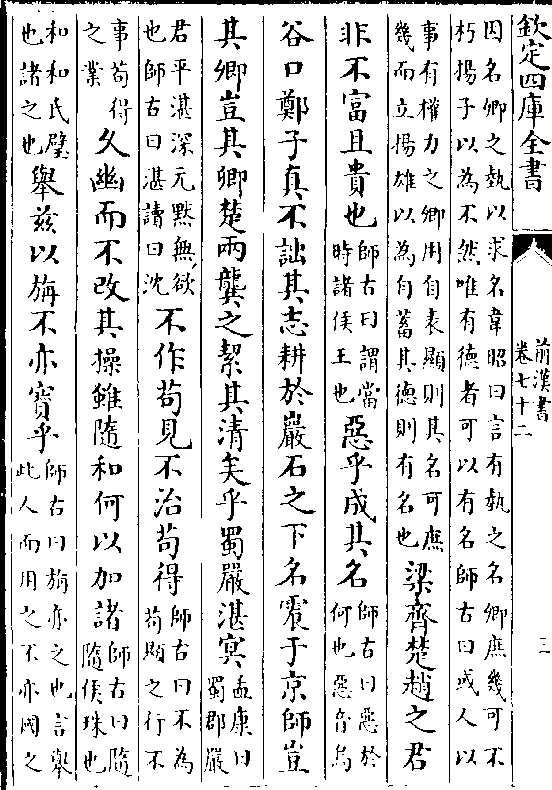 欽定四庫全書
前漢書
卷七十二
三
因名卿之埶以求名韋昭曰言有埶之名卿庶幾可不
朽揚子以為不然唯有德者可以有名師古曰或人以
事有權力之卿用自表顯則其名可庶
幾而立揚雄以為自蓄其德則有名也梁齊楚趙之君
非不富且貴也師古曰謂當時諸侯王也惡乎成其名師古曰惡於何也惡音烏
谷口鄭子真不詘其志耕於巖石之下名震于京師豈
其卿豈其卿楚兩龔之絜其清矣乎蜀嚴湛冥孟康曰蜀郡嚴
君平湛深元黙無欲也師古曰湛讀曰沈不作茍見不治茍得師古曰不為茍顯之行不
事茍得之業久幽而不改其操雖隨和何以加諸師古曰隨隨侯珠也
和和氏璧也諸之也舉兹以旃不亦寳乎師古曰旃亦之也言舉此人而用之不亦國之